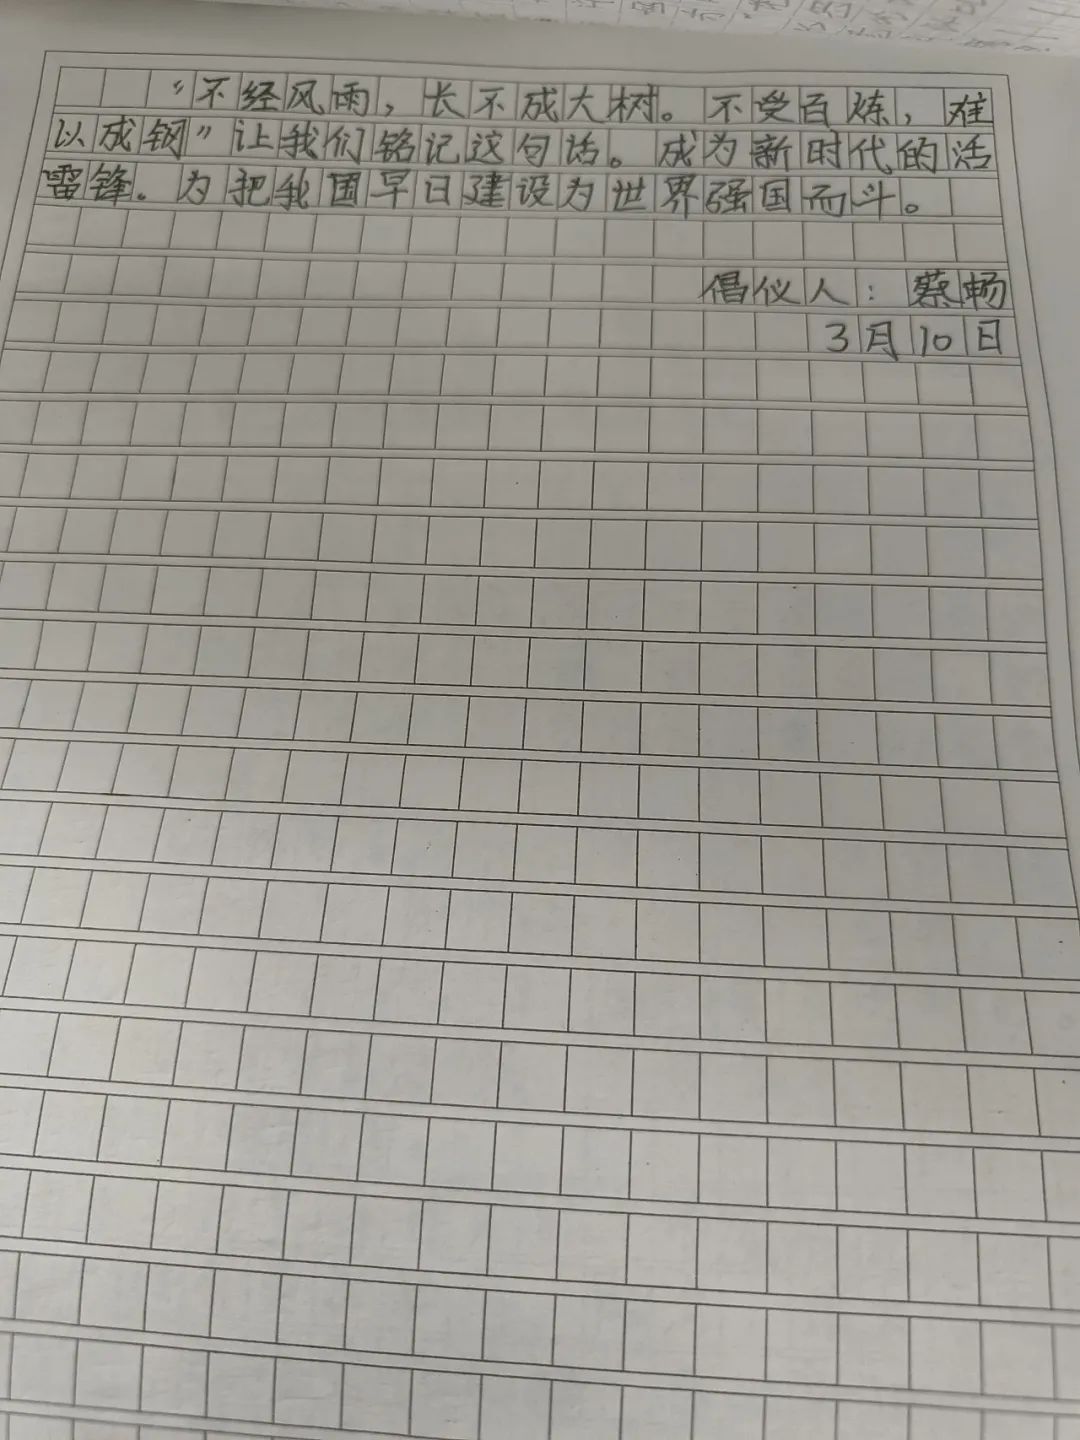 “不经风雨，长不成大树。不受百炼，难
以成钢”让我们铭记这句话。成为新时代的活
雷锋. 为把我国早日建设为世界强国而斗。
倡仪人：蔡畅
3月10日